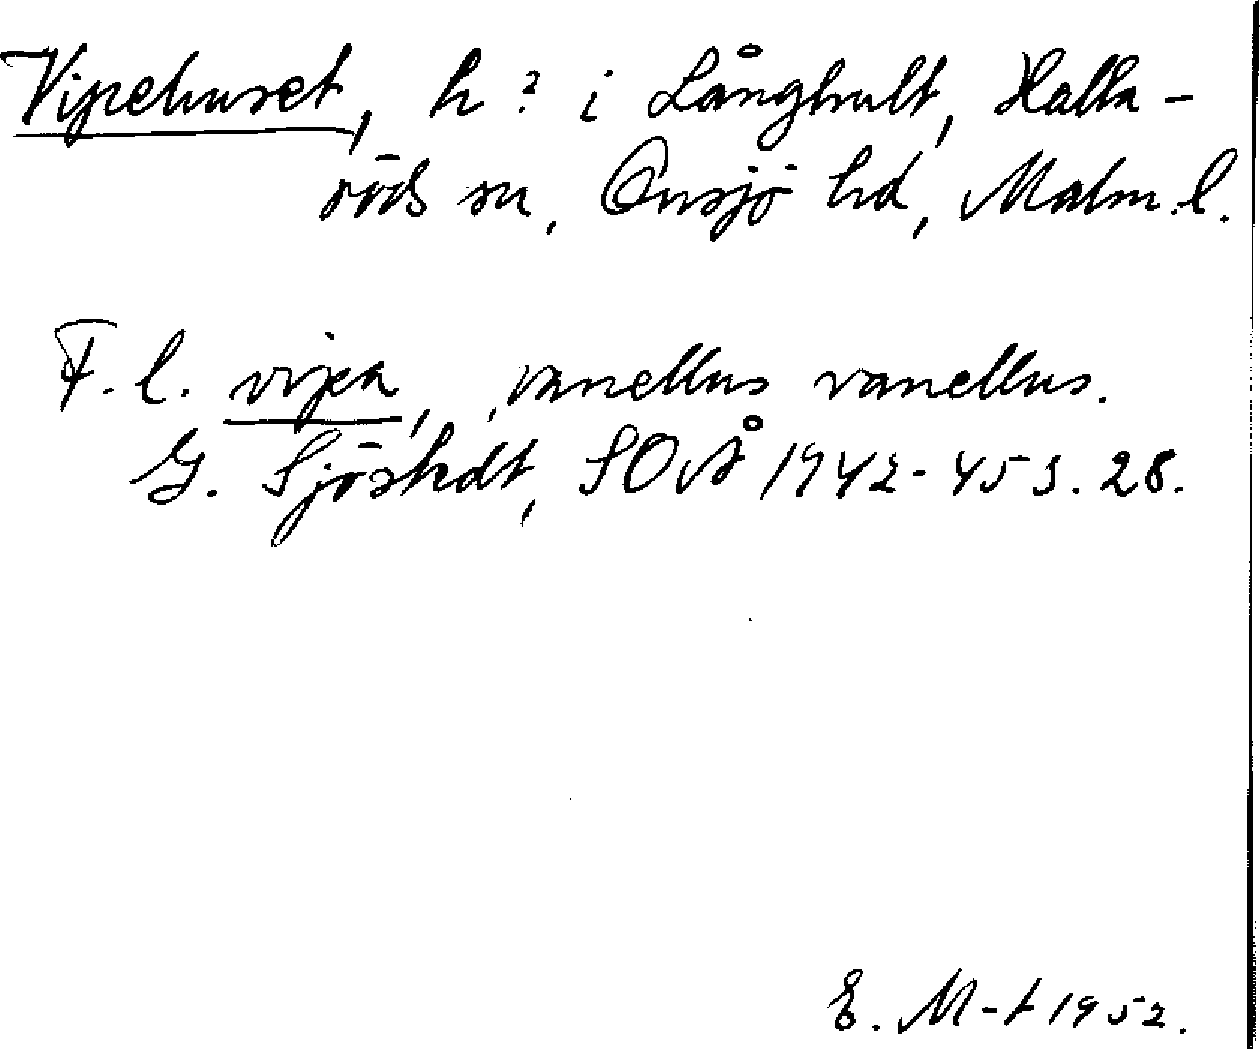 Vipehuset, h? i Långhult, Halla-
röds sn, Onsjö hd, Malm. l.
F. l. vipa, vanellus vanellus.
G. Sjöstedt, SOÅ 1942-45 s. 28.
E. M-t 1952.